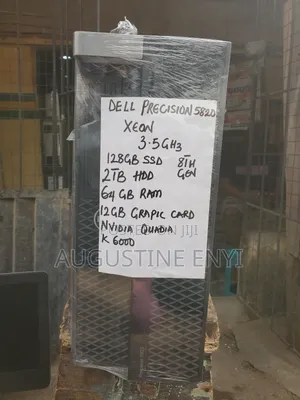 DELL PRECISION 5820
XEON
3.5GH3
128GB SSD 8TH GEN
2TB HDD
64GB RAM
12GB GRAPIC CARD
NVIDIA QUADIA
K 6000
JIJI
AUGUSTINE ENYI